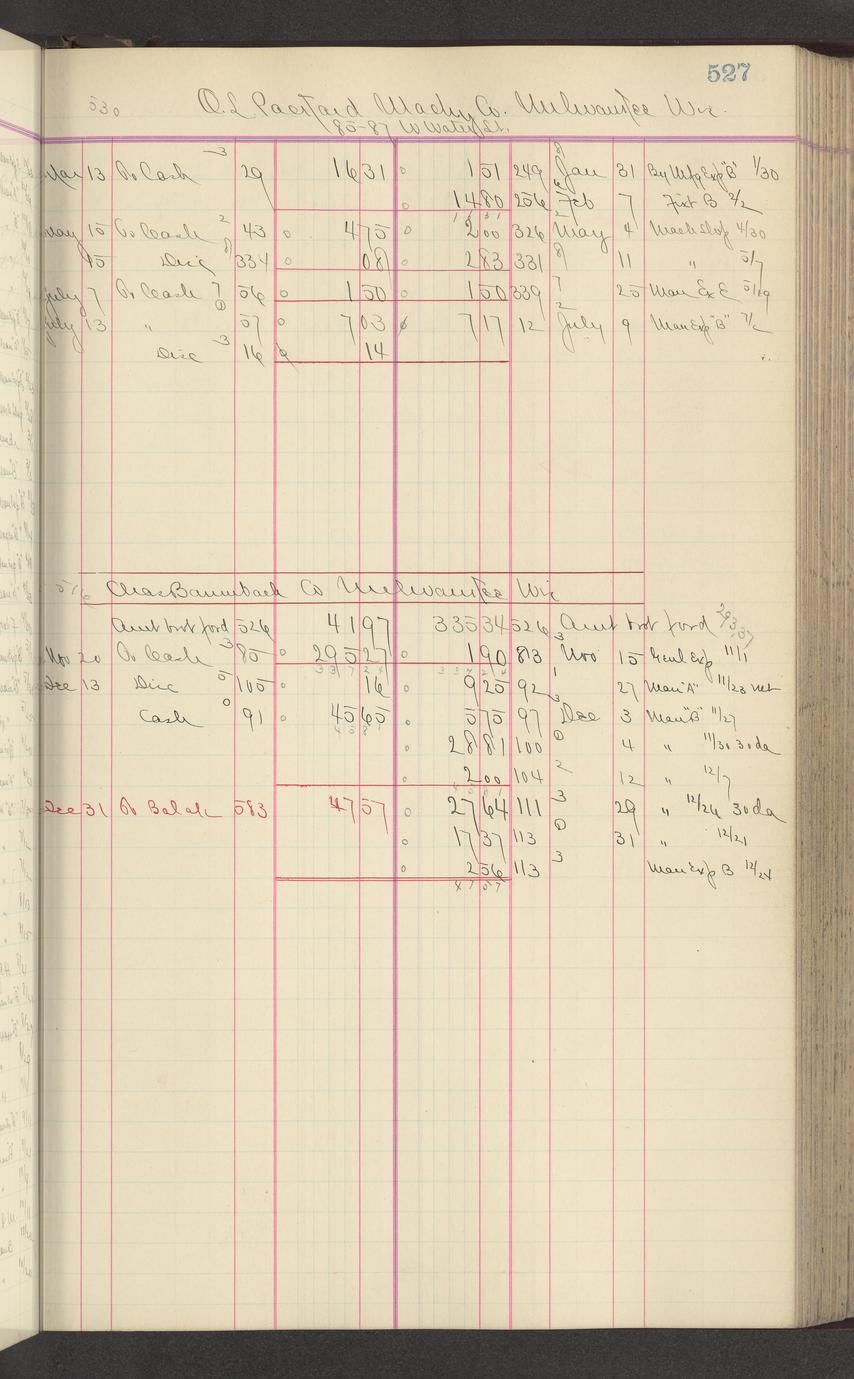 527
530 O.L. Packard Machy Co. Milwaukee Wis.
85-87 W Water St.
Mar 13 To Cash 3 29 16 31 1 51 249 8 Jan 31 By Mfg Exp "B" 1/30
14 80 256 6 Feb 7 Fixt B 2/2
16 31
May 15 To Cash 2 43 4 75 2 00 326 2 May 4 Mach Shop 4/30
15 Disc 8 334 08 2 83 331 8 11 " 5/7
July 7 To Cash 7 56 1 50 1 50 339 7 25 Man Ex E 5/19
July 13 " 0 57 7 03 7 17 12 2 July 9 Man Exp "B" 7/2
Disc 3 16 14
576 Chas Baumbach Co Milwaukee Wis
Amt brot ford 526 41 97 335 34 526 Amt brot ford 293.37
Nov 20 To Cash 3 85 295 27 1 90 83 3 Nov 15 Genl Exp 11/1
337 24 337 24
Dec 13 Disc 5 105 16 9 25 92 1 27 Man "A" 11/23 net
Cash 0 91 45 65 5 75 97 3 Dec 3 Man "B" 11/27
45 81
28 81 100 0 4 " 11/30 30 da
2 00 104 2 12 " 12/7
45 81
Dec 31 To Balance 583 47 57 27 64 111 3 29 " 12/26 30 da
17 37 113 0 31 " 12/21
2 56 113 3 Man Exp B 12/28
47 57